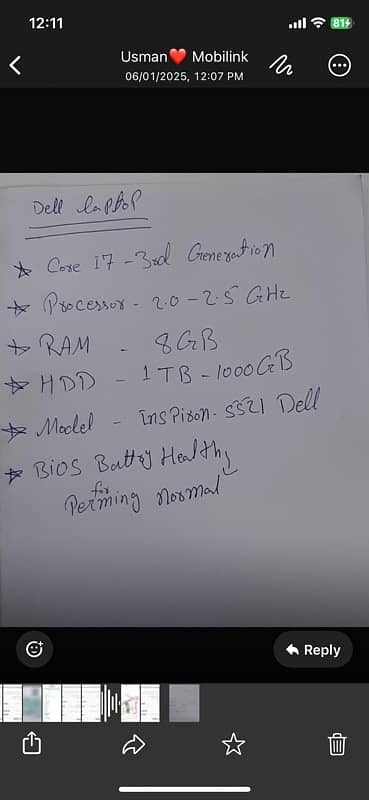 12:11
81
Usman❤️ Mobilink
06/01/2025, 12:07 PM
Dell laptop
Core i7 - 3rd Generation
Processor - 2.0 - 2.5 GHz
RAM - 8GB
HDD - 1TB - 1000GB
Model - Inspiron - 5521 Dell
BiOS Battry Healthy
for
Perming normal
Reply